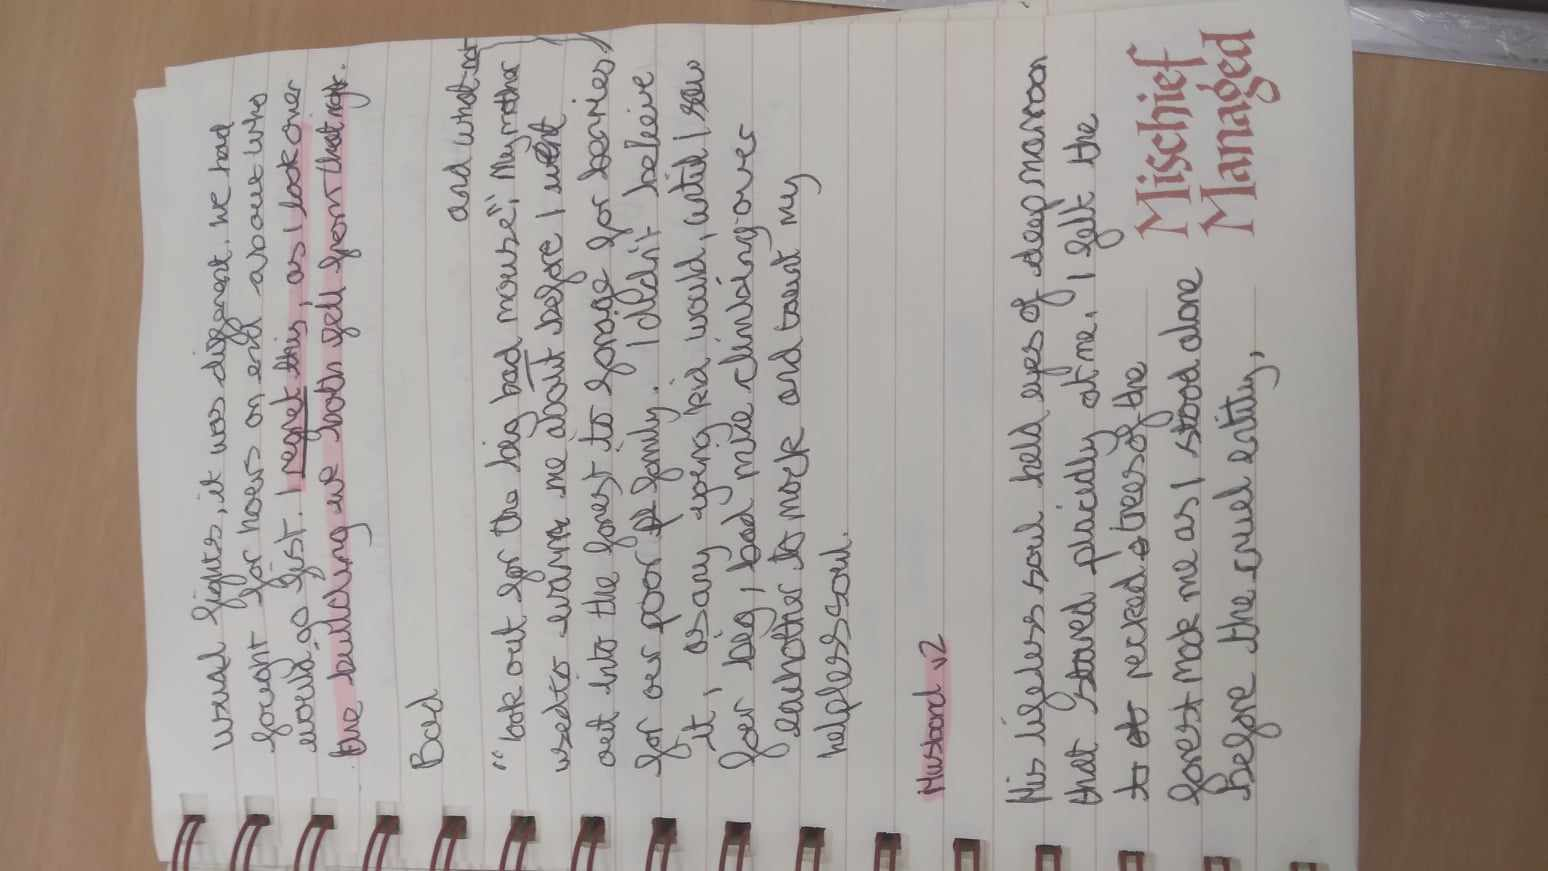 usual fights, it was different. We had
fought for hours on end about who
would go first. I regret this, as I look over
the building we both fell from that night.
Bad
and what not
"Look out for the big bad mouse", My mother
used to warn me about before I went
out into the forest to forage for berries
for our poor family. I didn't beleive
it, as any young kid would, until I saw
four big, bad mice climbing over
eachother to mock and taunt my
helpless soul.
Husband v2
His lifeless soul held eyes of deep maroon
that stared placidly at me. I felt the
trees of the
forest mock me as I stood alone
before the cruel entity,
Mischief
Managed